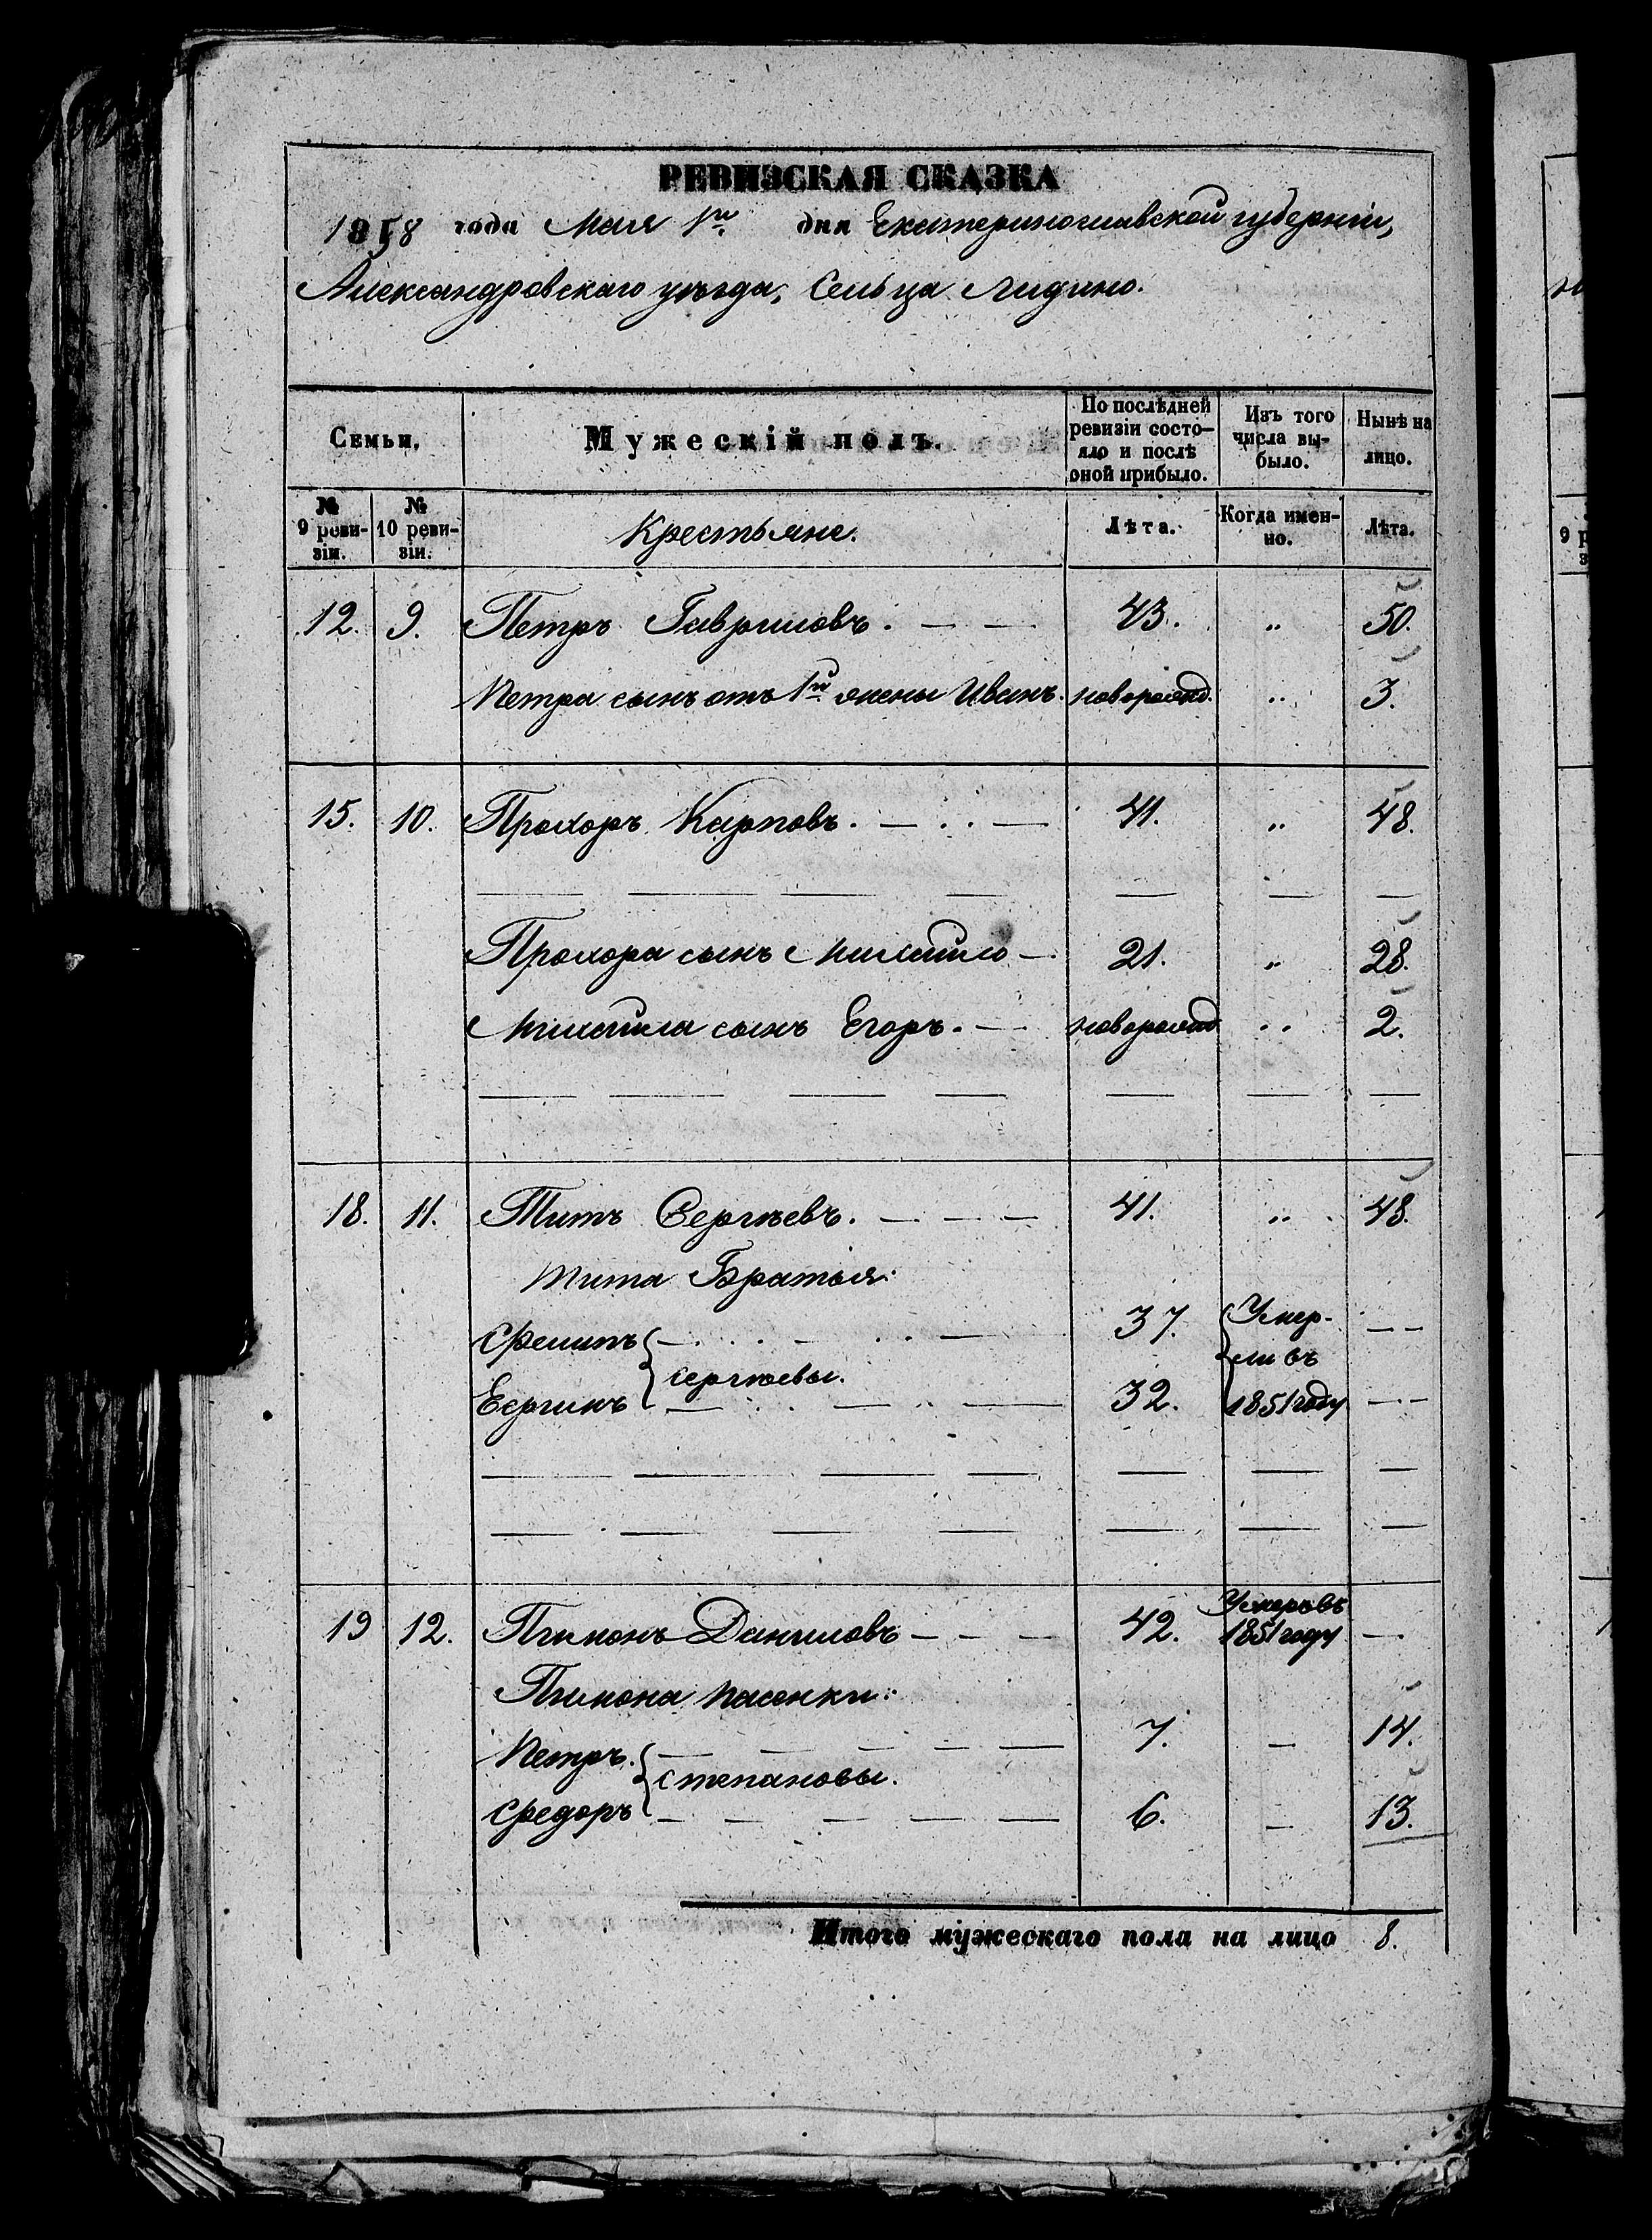 РЕВИЗСКАЯ СКАЗКА
1858 года Мая 1го дня Екатеринославской губерніи,
Александровскаго уѣзда, Сельца Лидино.
Семьи. Мужескій полъ. По послѣдней ревизіи состояло и послѣ оной прибыло. Изъ того числа выбыло. Нынѣ на лицо.
№ 9 ревизіи. № 10 ревизіи. Крестьяне. Лѣта. Когда именно. Лѣта.
12. 9. Петръ Гавриловъ. — — 43. „ 50.
Петра сынъ отъ 1й жены Иванъ. новорожд. „ 3.
15. 10. Прохоръ Карповъ. — — 41. „ 48.
Прохора сынъ Михайло — 21. „ 28.
Михайла сынъ Егоръ. — новорожд „ 2.
18. 11. Титъ Сергѣевъ. — — — 41. „ 48.
Тита Братья:
Филипъ — — — 37. Умер- — —
Сергѣевы. ли въ
— — — 32. 1851 году — —
19 12. Пимонъ Даниловъ — — — 42. Умеръ въ 1851 году —
Пимона пасенки:
Петръ. — — — — — 7. — 14.
Степановы.
Федоръ — — — — — 6. — 13.
Итого мужескаго пола на лицо 8.